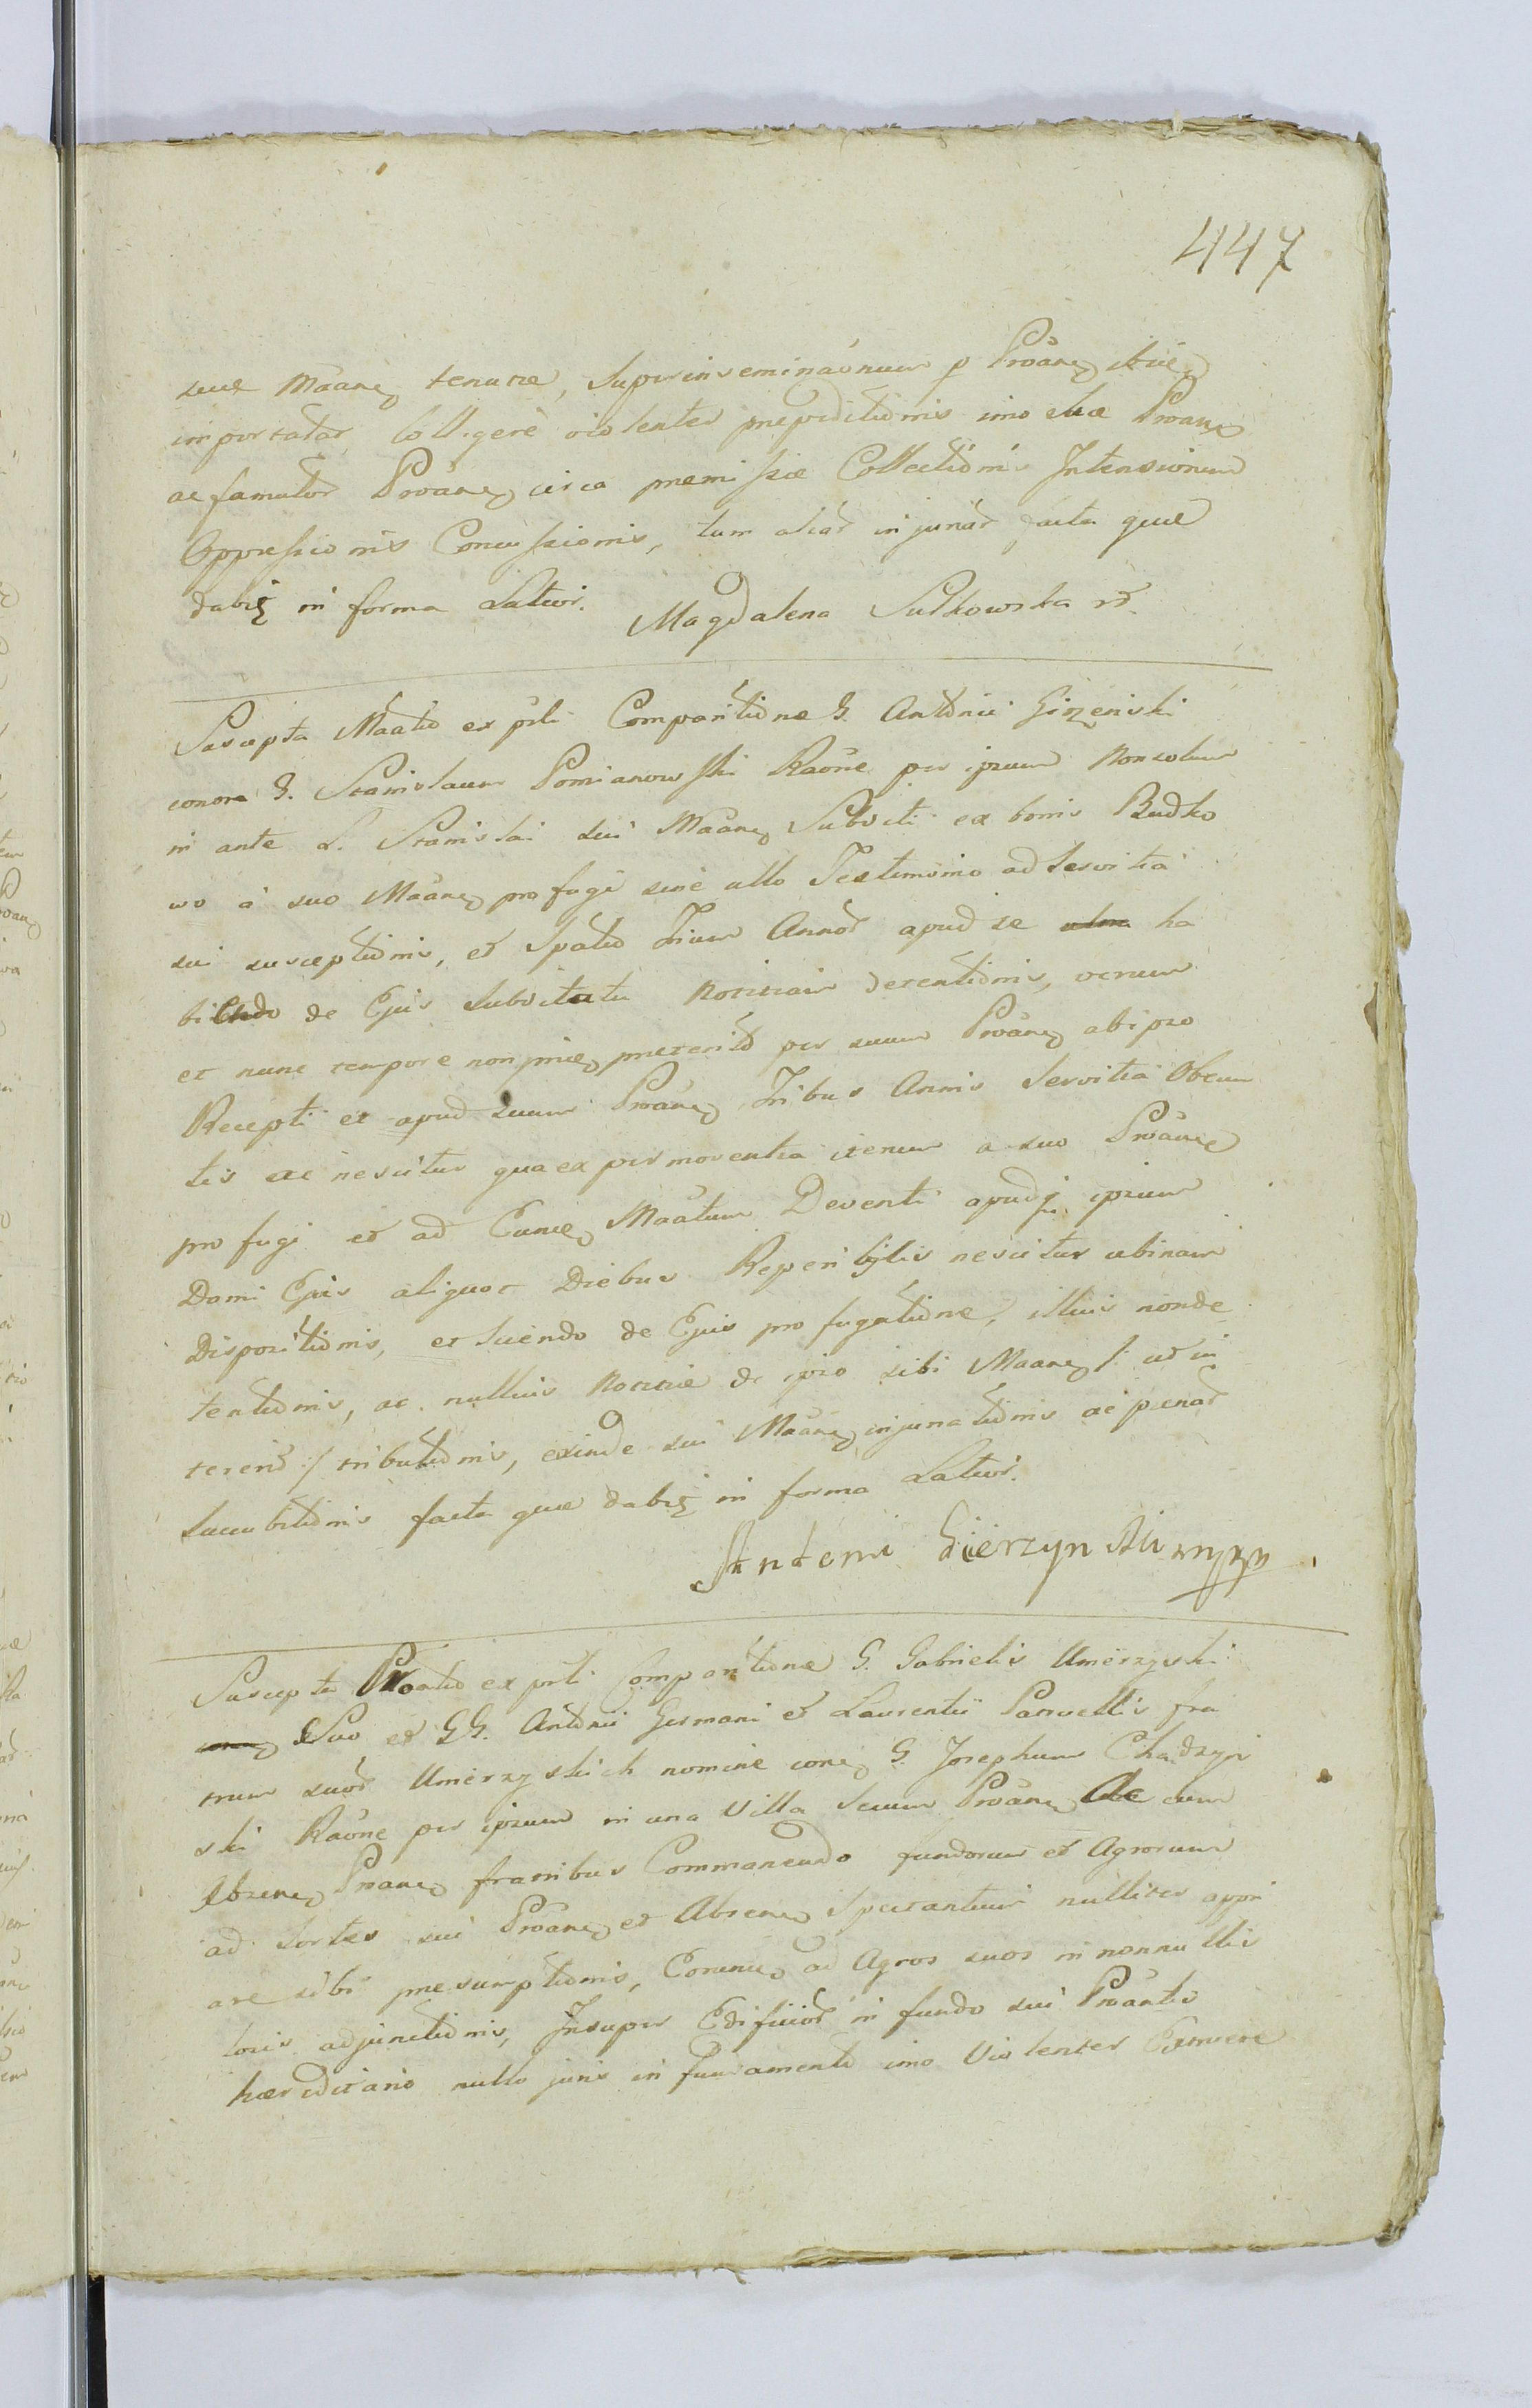 447
suæ Māane tenutæ, Superinseminaōnum p Proāne
importatar Colligere violenter præpeditionis imo ehæ Proane
ac famulor Proane circa præmissæ Collectionis Intensionum
Oppressionis Concussionis, tum aliar injuriar facta quæ
dabit in forma Latior. Magdalena Sulkowska
Suscepta Maātio ex prsti Comparitione G. Antonii Girzenski
contra G. Stanislaum Pomianowski Raōne per ipsum Nonsolum
in ante L. Stanislai sui Māane Subditi ex bonis Budko
wo à suo Māane profugi sine ullo Testimonio ad Servitia
sui susceptionis, et Spatio Trium Annor apud se ha
bitudo de Ejus Subditatu Notitiam detentionis, verum
et nunc tempore non præterito per suum Proane ab ipso
Recepti et apud suum Proane Tribus Annis Servitia Obeun
tis ac nescitur qua ex permoventia iterum a suo Proane
profugi et ad Eune Maātum Deventi apud ipsum
Domi Ejus aliquot Diebus Reperibilis nescitur ubinam
Dispositionis, et Sciendo de Ejus profugatione, illius nonde
tentionis, ac nullius Notitiæ de ipso sibi Māane /: ut in
tererit :/ tributionis, exinde sui Māane injuriationis ac pænar
Succubitionis facta quæ dabit in forma Latior.
Antoni Gierzynski mppp
Suscepta Proatio ex prsti Comparitione G. Gabrielis Umerzyski
Suo et GG. Antonii Germani et Laurentii Patruelis fra
trum suor Umerzyskich nomine cone G. Josephum Chadzyn
ski Raōne per ipsum in una Villa Secum Proane Ac cum
Absene Proane fratribus Commanendo fundorum et Agrorum
ad Sortes sui Proane et Absene Spectantium nulliter appri
are sibi præsumptionis, Eorume ad Agros suos in nonnullis
locis adjunctionis, Insuper Edificior in fundo sui Proantis
hæreditario nullo juris in fundamento imo Violenter